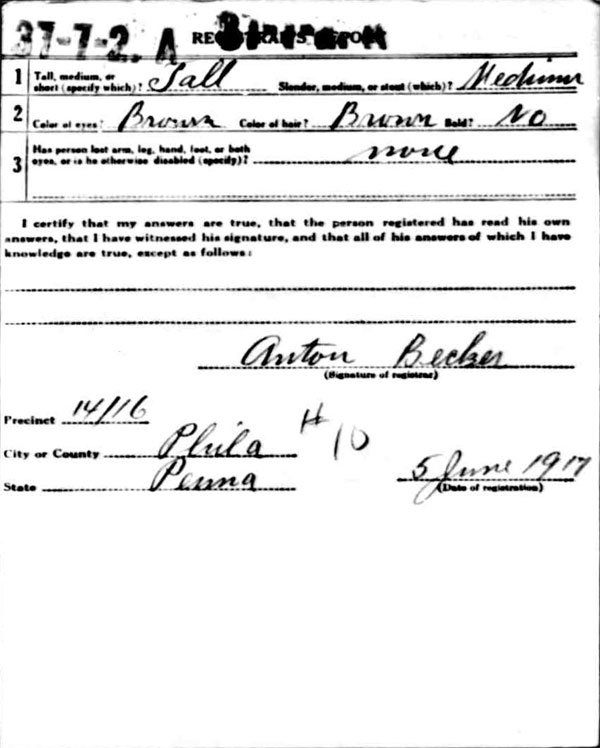 37-7-2. A REGISTRAR'S REPORT
1 Tall, medium, or short (specify which)? Tall Slender, medium, or stout (which)? Medium
2 Color of eyes? Brown Color of hair? Brown Bald? No
3 Has person lost arm, leg, hand, foot, or both
eyes, or is he otherwise disabled (specify)? none
I certify that my answers are true, that the person registered has read his own
answers, that I have witnessed his signature, and that all of his answers of which I have
knowledge are true, except as follows:
Anton Becker
(Signature of registrar)
Precinct 14/16
City or County Phila # 10
State Penna 5 June 1917
(Date of registration)